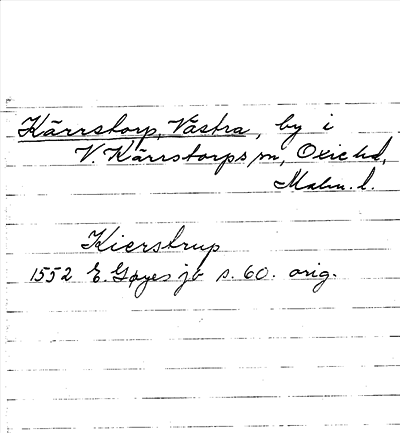 Kärrstorp, Västra, by i
V. Kärrstorps sn, Oxie hd,
Malm. l.
Kierstrup
1552 E. Gøyes jb s. 60. orig.